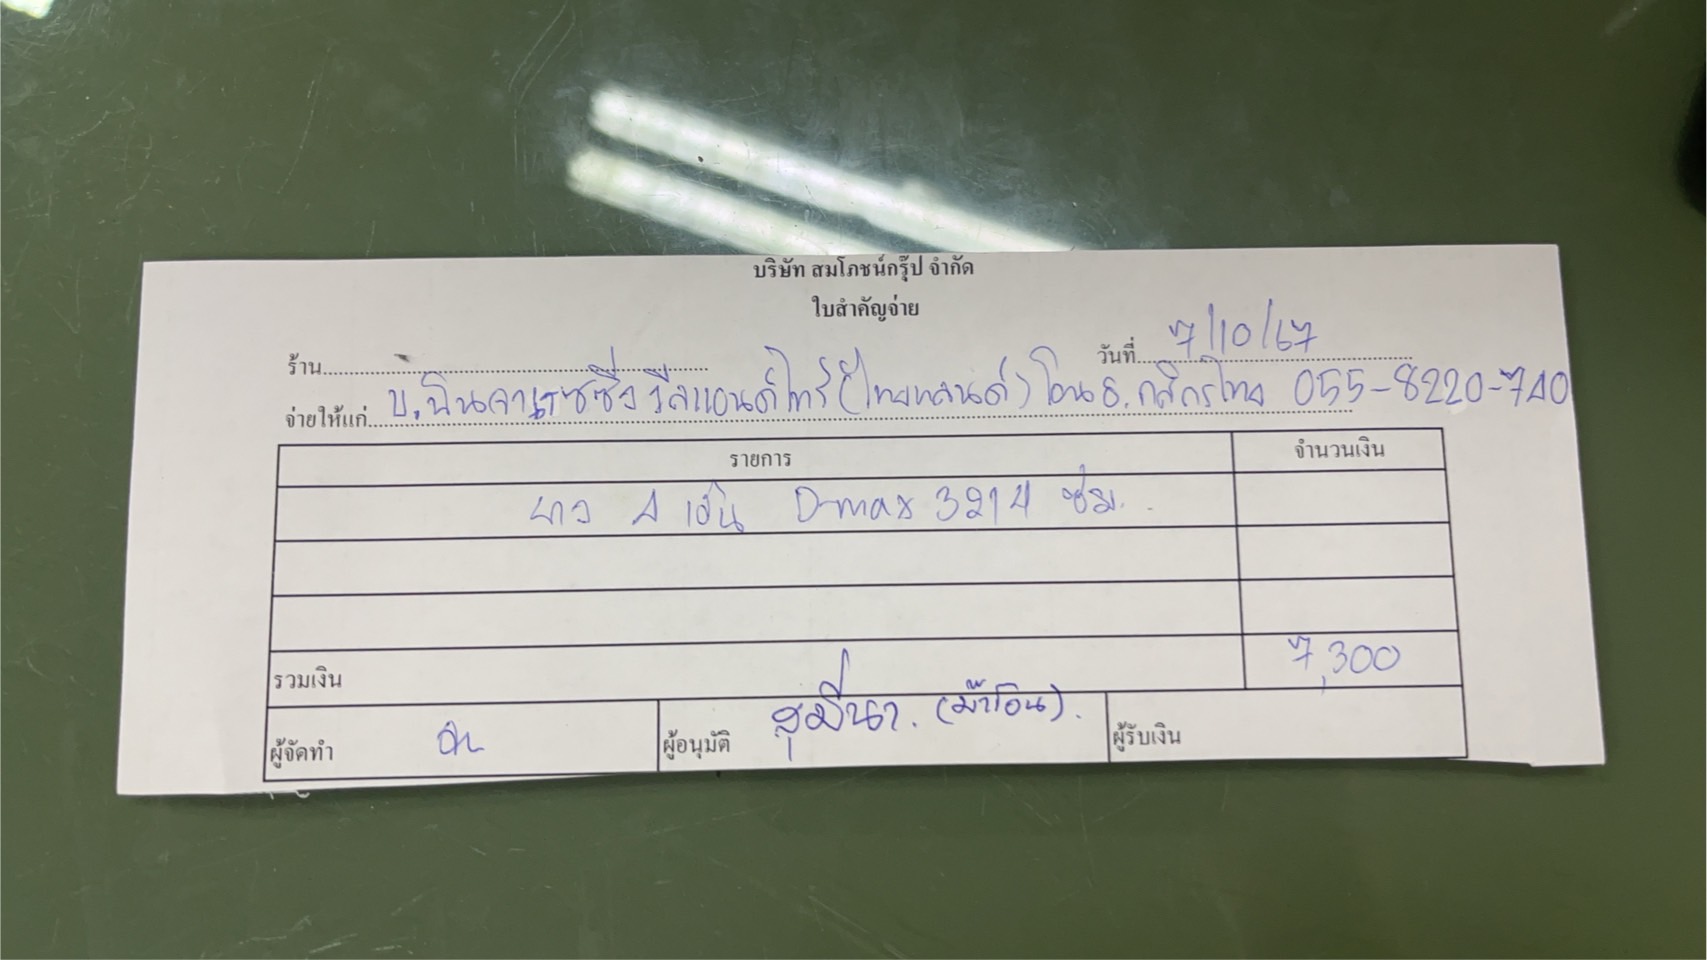 บริษัท สมโภชน์กรุ๊ป จำกัด
ใบสำคัญจ่าย
ร้าน
วันที่ 7/10/67
จ่ายให้แก่ บ.นินจาเรซซิ่ง วีลแอนด์ไทร์ (ไทยแลนด์) โอน ธ.กสิกรไทย 055-8220-740
รายการ จำนวนเงิน
ยาง 4 เส้น D-max 3214 ชม.
รวมเงิน 7,300
ผู้จัดทำ ผู้อนุมัติ สุมีนา. (ม๊าโอน). ผู้รับเงิน